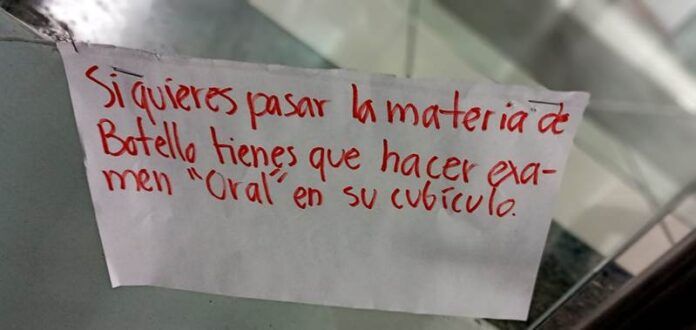 Si quieres pasar la materia de
Botello tienes que hacer exa-
men "Oral" en su cubículo.